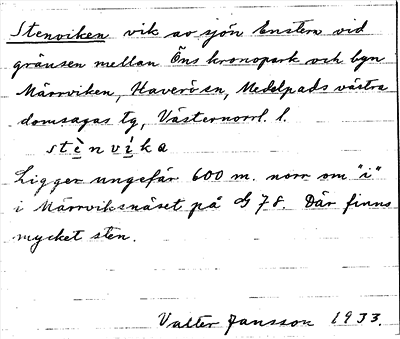 Stenviken vik av sjön Enstern vid
gränsen mellan Öns kronopark och byn
Märrviken, Haverö sn, Medelpads västra
domsagas tg, Västernorrl. l.
stènvíka
Ligger ungefär 600 m. norr om "i"
i Märrviksnäset på G 78. Där finns
mycket sten.
Valter Jansson 1933.